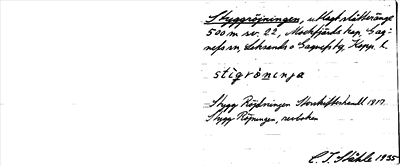 Styggröjningen, utlagt slåtteräng,
500 m sv. 22, Mockfjärds kap. Gag-
nefs sn, Leksands o Gagnefs tg, Kopp. l.
stigröninja
Stygg Röjdningen Storskifteshandl 1817
Stygg Röjningen, renboken
C. I. Ståhle 1935